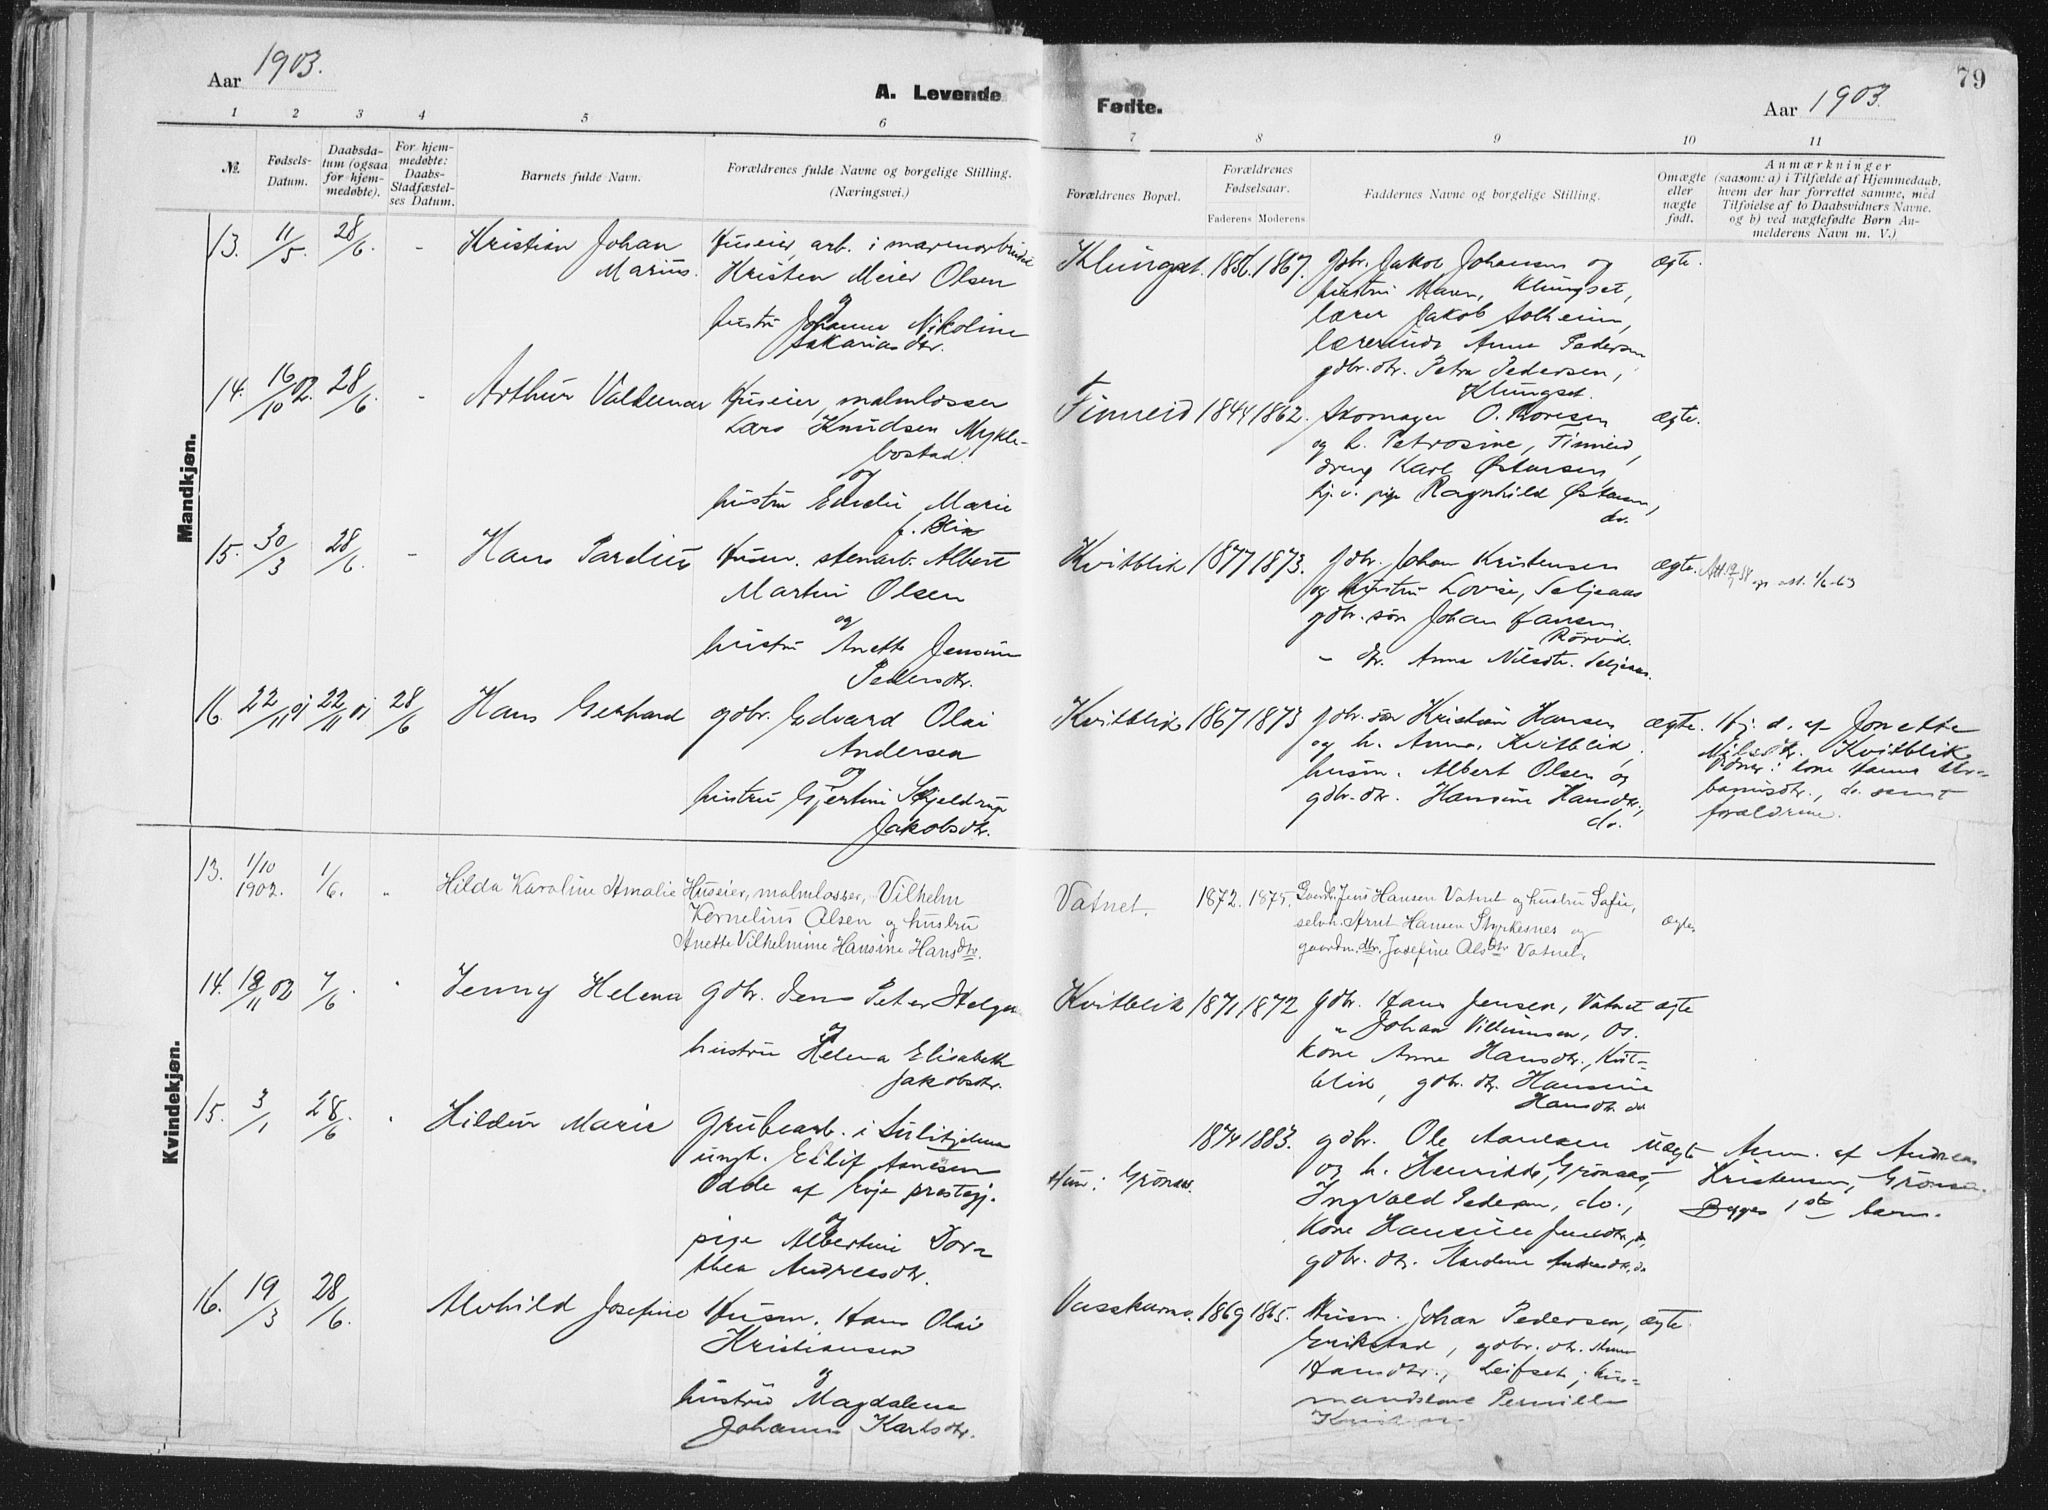 79
Aar 1903.
A. Levende Fødte.
Aar 1903.
1 2 3 4 5 6 7 8 9 10 11
№.
Fødsels-
Datum.
Daabsda-
tum (ogsaa
for hjem-
medøbte).
For hjem-
medøbte:
Daabs-
Stadfæstel-
ses Datum.
Barnets fulde Navn.
Forældrenes fulde Navne og borgelige Stilling.
(Næringsvei.)
Forældrenes Bopæl.
Forældrenes
Fødselsaar.
Faderens Moderens
Faddernes Navne og borgelige Stilling.
Omægte
eller
uægte
født.
Anmærkninger
(saasom: a) i Tilfælde af Hjemmedaab,
hvem der har forrettet samme, med
Tilføielse af to Daabsvidners Navne.
og b) ved uægtefødte Børn An-
melderens Navn m. V.)
Mandkjøn.
13. 11/5. 28/6. - Kristian Johan
Marius.
Huseier, arb. i
Kristen Meier Olsen
og
hustru Johanne Nikoline
Sakariasdtr.
Klungset. 1856. 1867.
gdbr. Jakob Johansen og
hustru Maren, Klungset,
lærer Jakob Solheim,
lærerinde Anna Pedersen
gdbr. dtr. Petra Pedersen,
Klungset.
ægte.
14. 16/10 02. 28/6. - Arthur Valdemar
Huseier, malmlosser
Lars Knudsen Mykle-
bostad.
og
hustru Emelie Marie
f. Blix
Finneid 1844 1862.
Skomager O. Thoresen
og h. Petrosine, Finneid,
dreng Karl Østensen,
hj. v. pige Ragnhild Østensen,
do.
ægte.
15. 30/3 28/6. - Hans Pardius
Husm. stenarb. Albert
Martin Olsen
og
hustru Anette Jensine
Pedersdtr.
Kvitblik 1877 1873.
gdbr. Johan Kristensen
og Hustru Lovise, Seljeaas
gdbr. søn Johan Hansen
Rørvik.
- dtr. Anna Nilsdtr. Seljeaas.
ægte.
16. 22/11 01 22/11 01 28/6 Hans Gerhard
gdbr. Edvard Olai
Andersen
og
hustru Gjertine Skjeldrup
Jakobsdtr.
Kvitblik 1867 1873
gdbr. søn Kristian Hansen
og h. Anna, Kvitblik,
husm. Albert Olsen og
gdbr. dtr. Hansine Hansdtr.,
do.
ægte.
Hj. d. af Jonette
Nilsdtr. Kvitblik
Vidner: kone Hanna Ur-
banusdtr., do. samt
forældrene.
Kvindekjøn.
13. 1/10
1902. 1/6. " Hilda Karoline Amalie
Huseier, malmlosser, Vilhelm
Kornelius Olsen og hustru
Anette Vilhelmine Hansine Hansdtr.
Vatnet. 1872. 1875.
Gaardb. Jens Hansen Vatnet og hustru Sofie,
selvh. Arnt Hansen Styrkesnes og
gaardm. dtr. Josefine Olsdtr Vatnet.
ægte.
14. 19/11 02 7/6. " Jenny Helena
gdbr. Jens Peter Helgesen
og
hustru Helena Elisabeth
Jakobsdtr.
Kvitblik 1871 1872
gdbr. Hans Jensen, Vatnet
" Johan Villumsen, do.
kone Anne Hansdtr., Kvit-
blik, gdbr. dtr. Hansine
Hansdtr. do
ægte
15. 3/1 28/6 " Hildur Marie
Grubearb. i Sulitjelma
ungk. Eilif Aanesen
Odde af Evje prestegj.
og
pige Albertine Doro-
thea Andreasdtr.
Hun: Grønaas.
1874 1883.
gdbr. Ole Aanesen
og h. Henrikke, Grønaas,
Ingvald Pedersen, do.,
kone Hansine Jensdtr, do,
gdbr. dtr. Kardine Andreasdtr, do
uægte
Anm. af Andreas
Kristensen, Grønaas.
Begges 1ste barn.
16. 19/3 28/6. Alvhild Josefine
Husm. Hans Olai
Kristiansen
og
hustru Magdalena
Johanna Karlsdtr.
Vasskarmo. 1869 1865.
Husm. Johan Pedersen,
Erikstad, gdbr. dtr. Anna
Hansdtr., Leifset; hus-
mandskone Pernille
ægte.